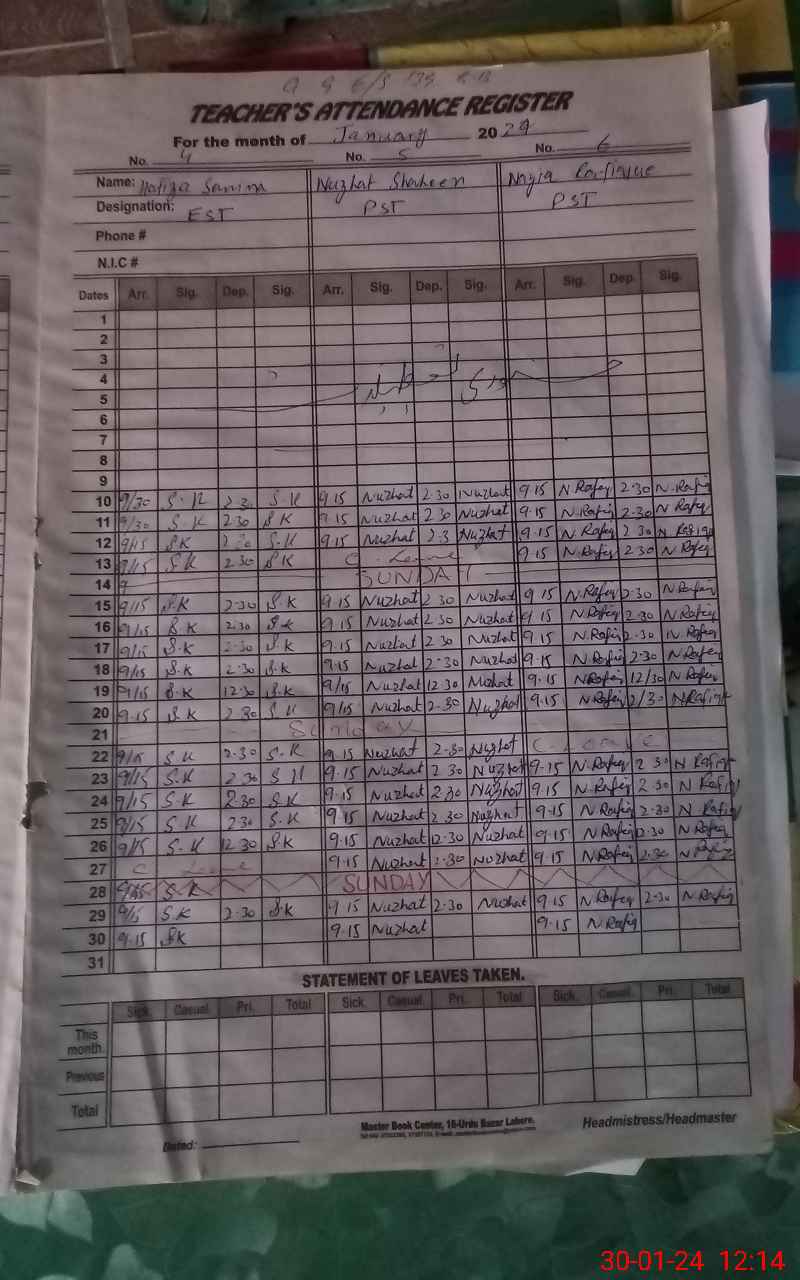 G G E/S 139 R.B
TEACHER'S ATTENDANCE REGISTER
For the month of January 2024
No. 4 No. 5 No. 6
Name: Hafiza Samina Nuzhat Shaheen Nazia Rafique
Designation: EST PST PST
Phone #
N.I.C #
Dates Arr. Sig. Dep. Sig. Arr. Sig. Dep. Sig. Arr. Sig. Dep. Sig.
1
2
3
4
5
6
7
8
9
10 9/30 S.K 2.30 S.K 9.15 Nuzhat 2.30 Nuzhat 9.15 N.Rafiq 2.30 N.Rafiq
11 9/30 S.K 2.30 S.K 9.15 Nuzhat 2.30 Nuzhat 9.15 N.Rafiq 2.30 N.Rafiq
12 9/15 S.K 2.30 S.K 9.15 Nuzhat 2.3 Nuzhat 9.15 N.Rafiq 2.30 N Rafiq
13 9/15 S.K 2.30 S.K C. Leave 9.15 N.Rafiq 2.30 N.Rafiq
14 9 SUNDAY
15 9/15 S.K 2.30 S.K 9.15 Nuzhat 2.30 Nuzhat 9.15 N.Rafiq 2.30 N.Rafiq
16 9/15 S.K 2.30 S.K 9.15 Nuzhat 2.30 Nuzhat 9.15 N.Rafiq 2.30 N.Rafiq
17 9/15 S.K 2.30 S.K 9.15 Nuzhat 2.30 Nuzhat 9.15 N.Rafiq 2.30 N.Rafiq
18 9/15 S.K 2.30 S.K 9.15 Nuzhat 2.30 Nuzhat 9.15 N.Rafiq 2.30 N.Rafiq
19 9/15 S.K 12.30 S.K 9/15 Nuzhat 12.30 Nuzhat 9.15 N.Rafiq 12/30 N.Rafiq
20 9.15 S.K 2.30 S.K 9/15 Nuzhat 2.30 Nuzhat 9.15 N.Rafiq 2/30 N.Rafiq
21 Sunday
22 9/15 S.K 2.30 S.K 9.15 Nuzhat 2.30 Nuzhat C. Leave
23 9/15 S.K 2.30 S.K 9.15 Nuzhat 2.30 Nuzhat 9.15 N.Rafiq 2.30 N Rafiq
24 9/15 S.K 2.30 S.K 9.15 Nuzhat 2.30 Nuzhat 9.15 N.Rafiq 2.30 N Rafiq
25 9/15 S.K 2.30 S.K 9.15 Nuzhat 2.30 Nuzhat 9.15 N.Rafiq 2.30 N Rafiq
26 9/15 S.K 12.30 S.K 9.15 Nuzhat 12.30 Nuzhat 9.15 N.Rafiq 12.30 N Rafiq
27 C Leave 9.15 Nuzhat 2.30 Nuzhat 9.15 N.Rafiq 2.30 N Rafiq
28 9/15 S.K SUNDAY
29 9/15 S.K 2.30 S.K 9.15 Nuzhat 2.30 Nuzhat 9.15 N.Rafiq 2.30 N.Rafiq
30 9.15 S.K 9.15 Nuzhat 9.15 N Rafiq
31
STATEMENT OF LEAVES TAKEN.
Sick. Casual. Pri. Total Sick. Casual. Pri. Total Sick. Casual. Pri. Total
This month.
Previous
Total
Dated: Master Book Center, 16-Urdu Bazar Lahore. Headmistress/Headmaster
30-01-24 12:14